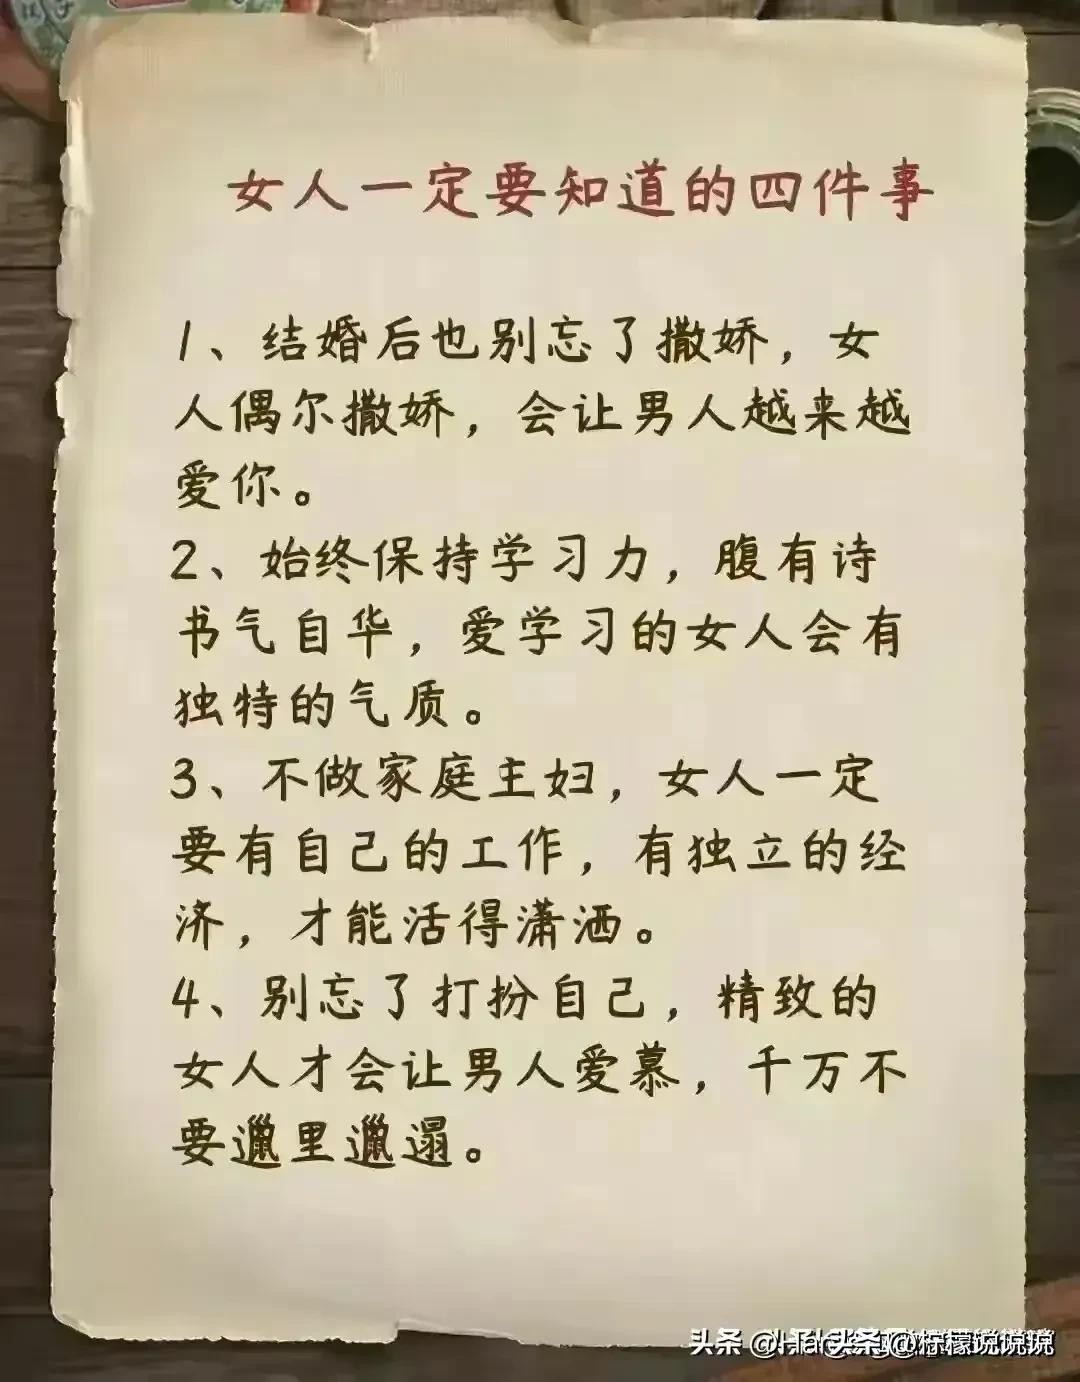 女人一定要知道的四件事
1、结婚后也别忘了撒娇，女
人偶尔撒娇，会让男人越来越
爱你。
2、始终保持学习力，腹有诗
书气自华，爱学习的女人会有
独特的气质。
3、不做家庭主妇，女人一定
要有自己的工作，有独立的经
济，才能活得潇洒。
4、别忘了打扮自己，精致的
女人才会让男人爱慕，千万不
要邋里邋遢。
头条